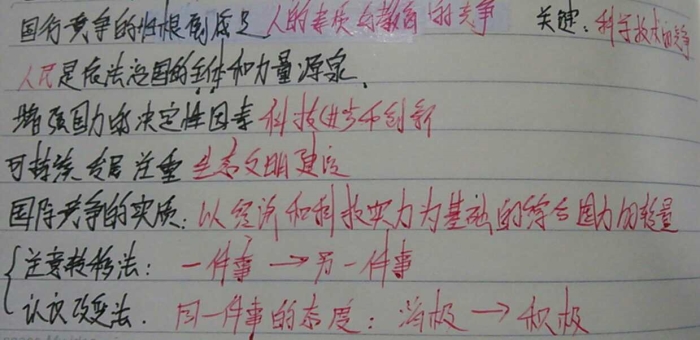 国际竞争的归根到底是人的素质与教育的竞争 关键:科学技术的竞争
人民是依法治国的主体和力量源泉.
增强国力的决定性因素 科技进步和创新
可持续发展 注重 生态文明建设
国际竞争的实质:以经济和科技实力为基础的综合国力的较量
注意转移法: 一件事 → 另一件事
认识改变法. 同一件事的态度:消极 → 积极